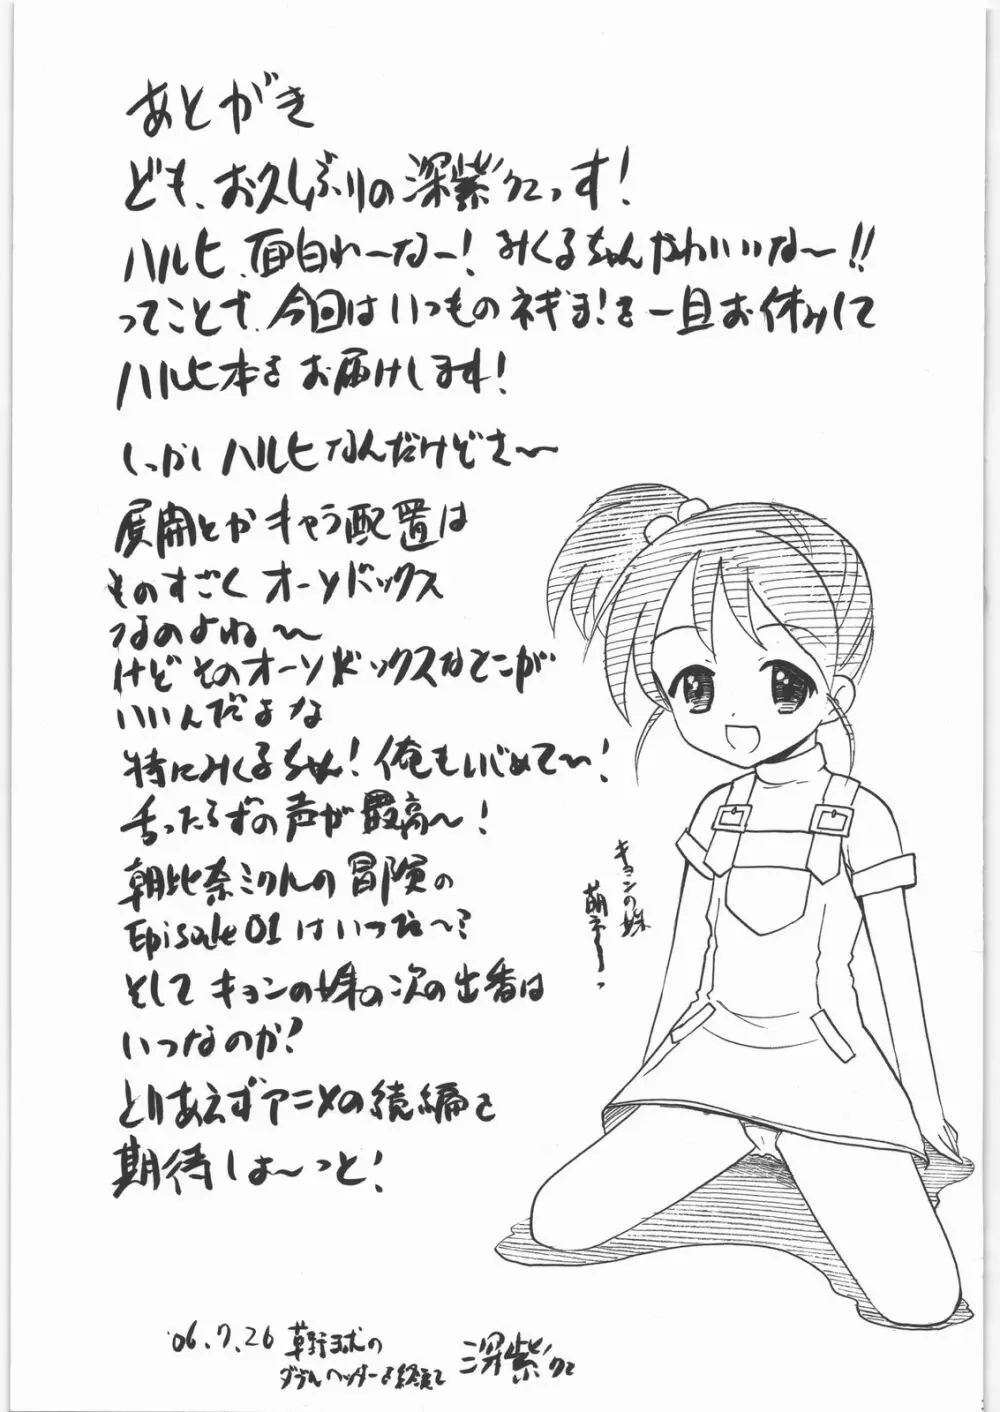 あとがき
ども、お久しぶりの深紫です!
ハルヒ、面白れーなー!みくるちゃんかわいいな〜!!
ってことで、今回はいつものネギま!を一旦お休みして
ハルヒ本をお届けします!
しっかしハルヒなんだけどさ〜
展開とかキャラ配置は
ものすごくオーソドックス
なのよね〜
けどそのオーソドックスなとこが
いいんだよな
特にみくるちゃん!俺もいじめて〜!
舌ったらずの声が最高〜!
朝比奈ミクルの冒険の
Episode 01はいつだ〜?
そしてキョンの妹の次の出番は
いつなのか?
とりあえずアニメの続編を
期待しよ〜っと!
キョンの妹
萌え〜っ
'06.7.26 草野球の
ダブルヘッダーを終えて
深紫